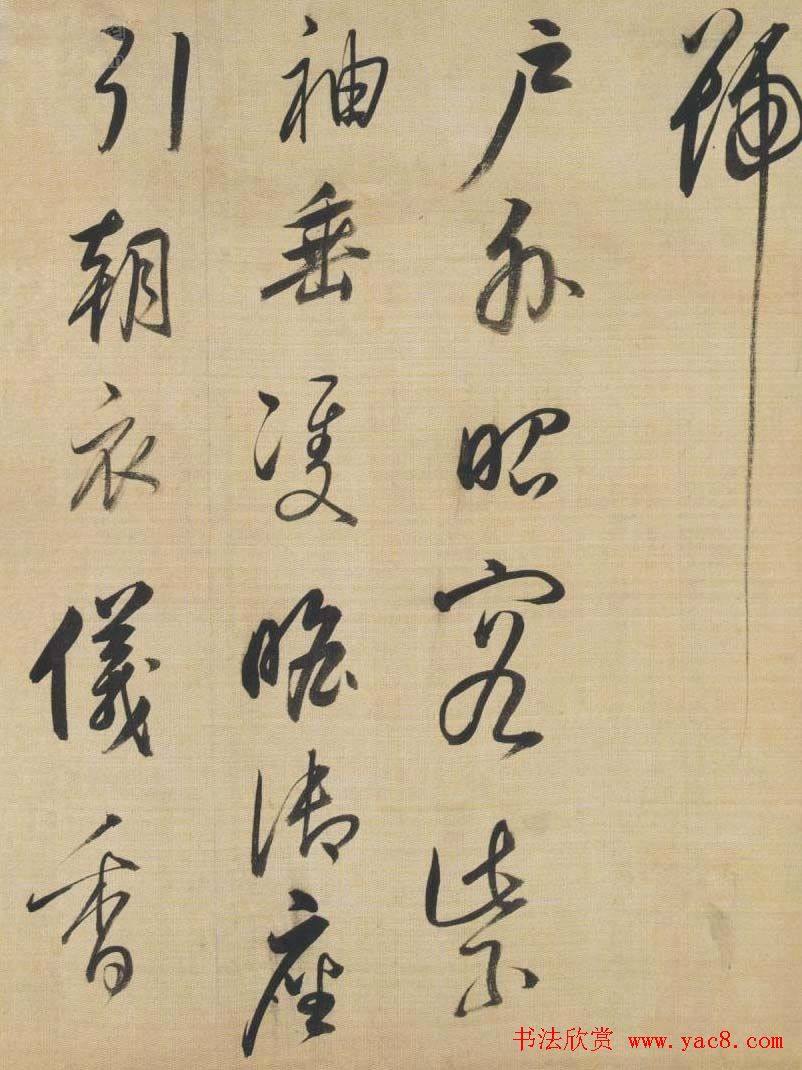 號
户外昭容紫
袖垂雙瞻御座
引朝衣儀香
书法欣赏 www.yac8.com